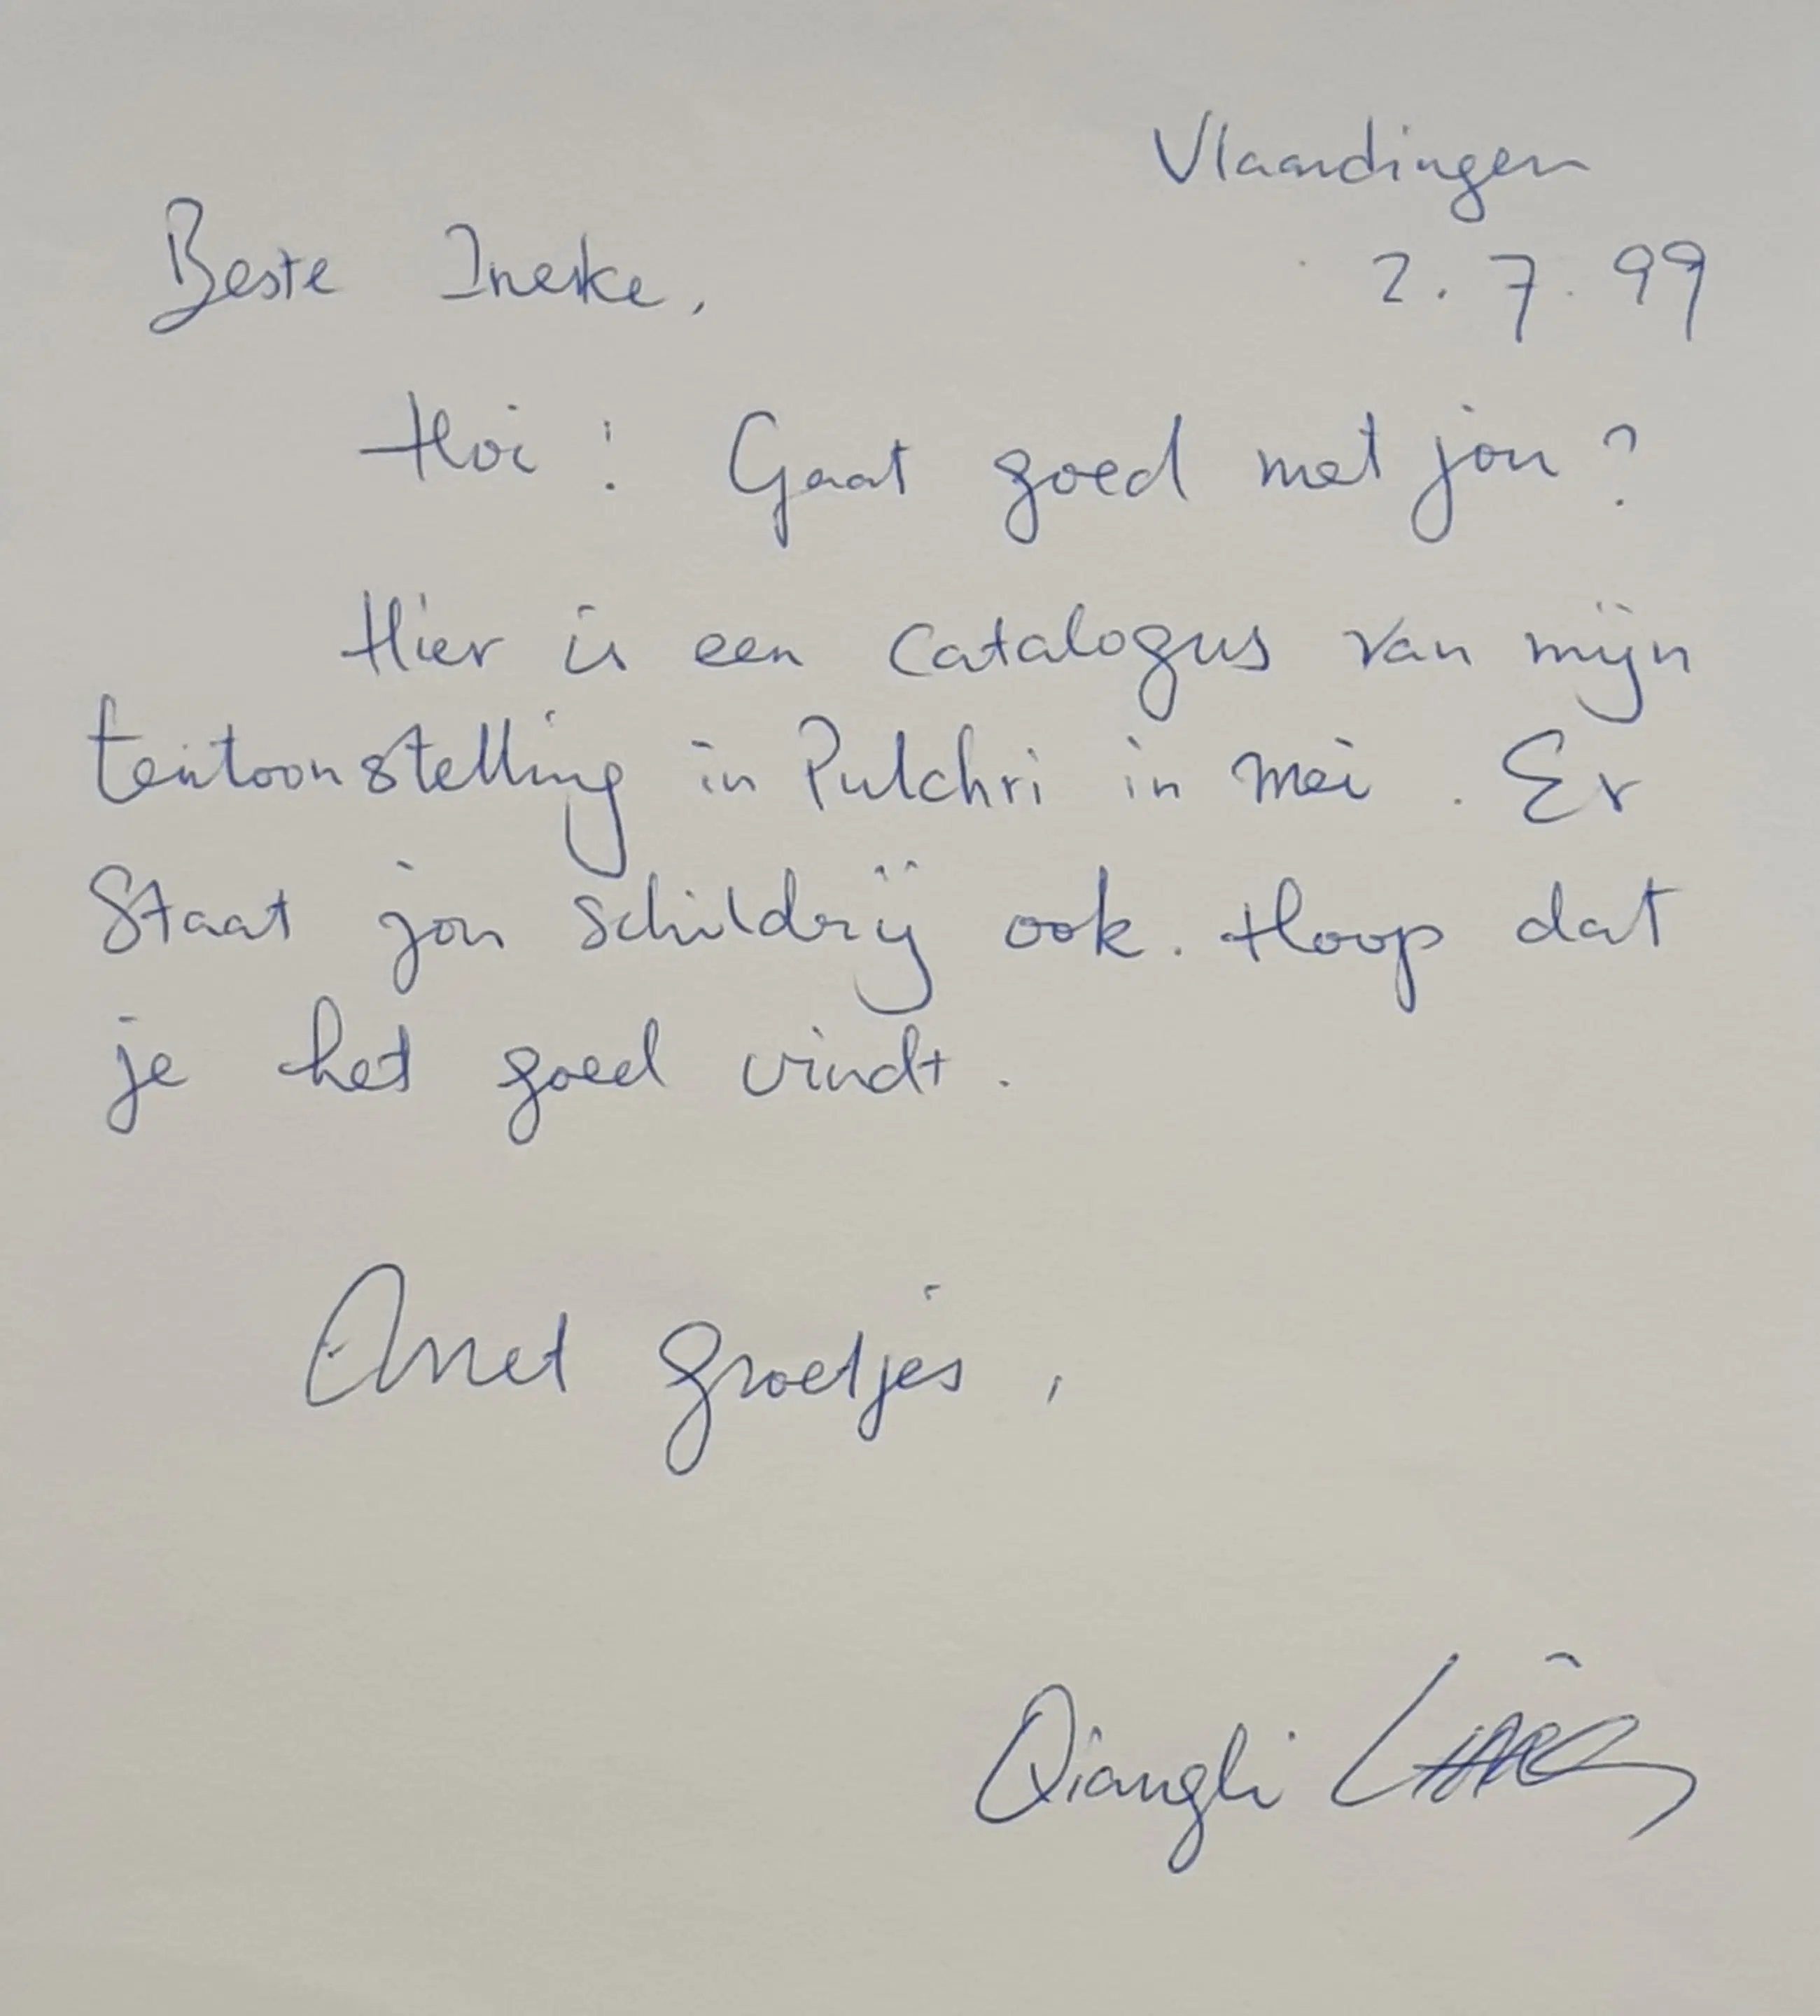 Vlaardingen
Beste Ineke,
2.7.99
Hoi! Gaat goed met jou?
Hier is een catalogus van mijn
tentoonstelling in Pulchri in mei. Er
Staat jou schildrij ook. Hoop dat
je het goed vindt.
met groetjes,
Qiangli